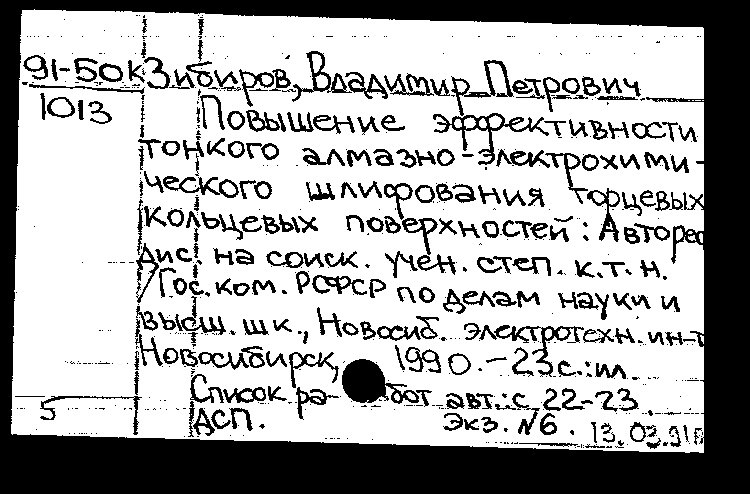 91-50к Зибиров, Владимир Петрович
1013
Повышение эффективности
тонкого алмазно-электрохими-
ческого шлифования торцевых
кольцевых поверхностей: Автореф
дис. на соиск. учен. степ. к.т.н.
/Гос.ком. РСФСР по делам науки и
высш. шк., Новосиб. электротехн. ин-т
Новосибирск, 1990.-23с.:ил.
Список работ авт.:с 22-23.
5
ДСП. Экз. №6. 13.03.91